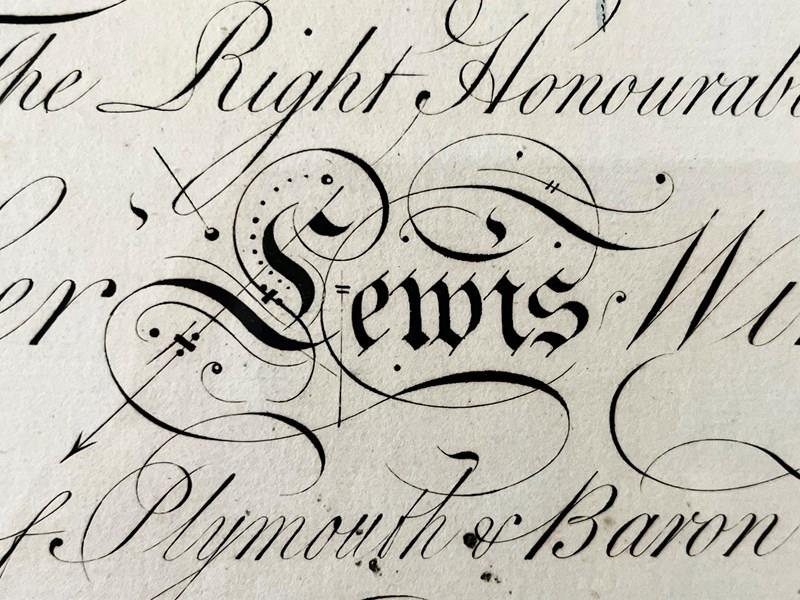 The Right Honourab
er Lewis Wi
of Plymouth & Baron